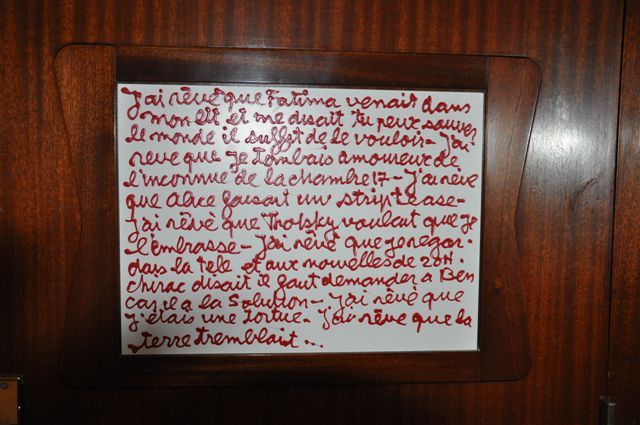 J'ai rêvé que Fatima venait dans
mon lit et me disait tu peux sauver
le monde il suffit de le vouloir - j'ai
rêvé que je tombais amoureux de
l'inconnue de la chambre 17 - J'ai rêvé
que Alice faisait un strip tease -
J'ai rêvé que Trotsky voulait que je
l'embrasse - J'ai rêvé que je regar.
dais la télé et aux nouvelles de 20H.
chirac disait il faut demander a Ben
car il a la Solution - j'ai rêvé que
j'étais une tortue - j'ai rêve que la
terre tremblait ...